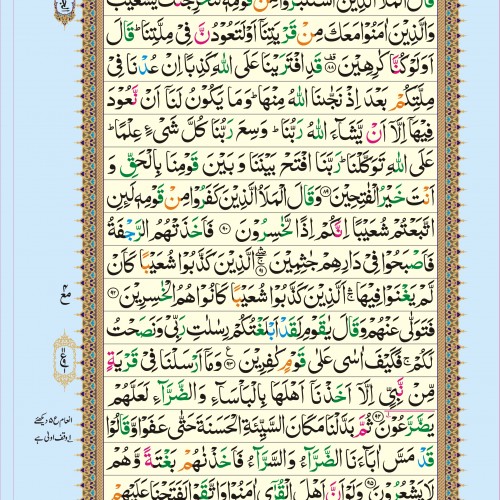 قَالَ الْمَلَاُ الَّذِيْنَ اسْتَكْبَرُوْا مِنْ قَوْمِهٖ لَنُخْرِجَنَّكَ يٰشُعَيْبُ
وَالَّذِيْنَ اٰمَنُوْا مَعَكَ مِنْ قَرْيَتِنَاۤ اَوْ لَتَعُوْدُنَّ فِيْ مِلَّتِنَا ؕ قَالَ
اَوَلَوْ كُنَّا كٰرِهِيْنَ ﴿۸۸﴾ قَدِ افْتَرَيْنَا عَلَى اللّٰهِ كَذِبًا اِنْ عُدْنَا فِيْ
مِلَّتِكُمْ بَعْدَ اِذْ نَجّٰىنَا اللّٰهُ مِنْهَا ؕ وَمَا يَكُوْنُ لَنَاۤ اَنْ نَّعُوْدَ
فِيْهَاۤ اِلَّاۤ اَنْ يَّشَآءَ اللّٰهُ رَبُّنَا ؕ وَسِعَ رَبُّنَا كُلَّ شَيْءٍ عِلْمًا ؕ
عَلَى اللّٰهِ تَوَكَّلْنَا ؕ رَبَّنَا افْتَحْ بَيْنَنَا وَبَيْنَ قَوْمِنَا بِالْحَقِّ وَ
اَنْتَ خَيْرُ الْفٰتِحِيْنَ ﴿۸۹﴾ وَقَالَ الْمَلَاُ الَّذِيْنَ كَفَرُوْا مِنْ قَوْمِهٖ لَىِٕنِ
اتَّبَعْتُمْ شُعَيْبًا اِنَّكُمْ اِذًا لَّخٰسِرُوْنَ ﴿۹۰﴾ فَاَخَذَتْهُمُ الرَّجْفَةُ
فَاَصْبَحُوْا فِيْ دَارِهِمْ جٰثِمِيْنَ ﴿۹۱﴾ الَّذِيْنَ كَذَّبُوْا شُعَيْبًا كَاَنْ
لَّمْ يَغْنَوْا فِيْهَا ۚ اَلَّذِيْنَ كَذَّبُوْا شُعَيْبًا كَانُوْا هُمُ الْخٰسِرِيْنَ ﴿۹۲﴾
فَتَوَلّٰى عَنْهُمْ وَقَالَ يٰقَوْمِ لَقَدْ اَبْلَغْتُكُمْ رِسٰلٰتِ رَبِّيْ وَنَصَحْتُ
لَكُمْ ۚ فَكَيْفَ اٰسٰى عَلٰى قَوْمٍ كٰفِرِيْنَ ﴿۹۳﴾ وَمَاۤ اَرْسَلْنَا فِيْ قَرْيَةٍ
مِّنْ نَّبِيٍّ اِلَّاۤ اَخَذْنَاۤ اَهْلَهَا بِالْبَاْسَآءِ وَالضَّرَّآءِ لَعَلَّهُمْ
يَضَّرَّعُوْنَ ﴿۹۴﴾ ثُمَّ بَدَّلْنَا مَكَانَ السَّيِّئَةِ الْحَسَنَةَ حَتّٰى عَفَوْا وَّقَالُوْا
قَدْ مَسَّ اٰبَآءَنَا الضَّرَّآءُ وَالسَّرَّآءُ فَاَخَذْنٰهُمْ بَغْتَةً وَّهُمْ
لَا يَشْعُرُوْنَ ﴿۹۵﴾ وَلَوْ اَنَّ اَهْلَ الْقُرٰۤى اٰمَنُوْا وَاتَّقَوْا لَفَتَحْنَا عَلَيْهِمْ